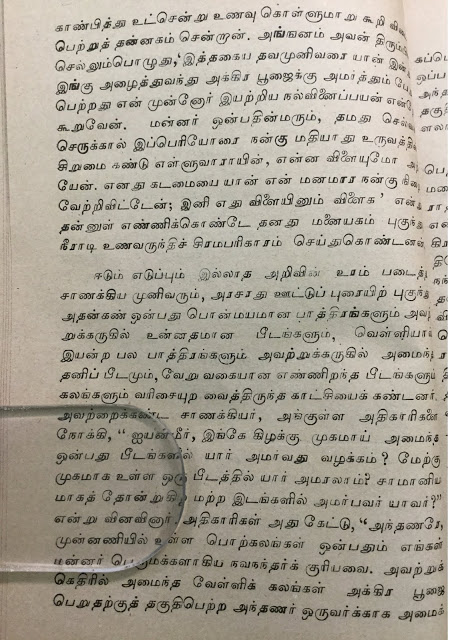 காண்பித்து உட்சென்று உணவு கொள்ளுமாறு கூறி
பெற்றுத் தன்னகம் சென்றான். அங்ஙனம் அவன்
செல்லும்பொழுது, 'இத்தகைய தவமுனிவரை யான்
இங்கு அழைத்துவந்து அக்கிர பூஜைக்கு அமர்த்தும்
பெற்றது என் முன்னோர் இயற்றிய நல்வினைப்பயன்
கூறுவேன். மன்னர் ஒன்பதின்மரும், தமது
செருக்கால் இப்பெரியோரை நன்கு மதியாது
சிறுமை கண்டு எள்ளுவாராயின், என்ன விளையுமோ
யேன். எனது கடமையை யான் என் மனமார நன்கு
வேற்றிவிட்டேன்; இனி எது விளையினும் விளைக'
தன்னுள் எண்ணிக்கொண்டே தனது மனையகம்
நீராடி உணவருந்திச் சிரமபரிகாரம் செய்துகொண்டனன்
ஈடும் எடுப்பும் இல்லாத அறிவின் உரம்
சாணக்கிய முனிவரும், அரசரது ஊட்டுப் புரையிற்
அதன்கண் ஒன்பது பொன்மயமான பாத்திரங்களும்
றுக்கருகில் உன்னதமான பீடங்களும்,
இயன்ற பல பாத்திரங்களும் அவற்றுக்கருகில்
தனிப் பீடமும், வேறு வகையான எண்ணிறந்த
கலங்களும் வரிசையுற வைத்திருந்த காட்சியைக் கண்டனர்.
அவற்றைக்கண்ட சாணக்கியர், அங்குள்ள
நோக்கி, "ஐயன்மீர், இங்கே கிழக்கு முகமாய்
ஒன்பது பீடங்களில் யார் அமர்வது வழக்கம்? மேற்கு
முகமாக உள்ள ஒரு பீடத்தில் யார் அமரலாம்? சாமானிய
மாகத் தோன்றுகிற மற்ற இடங்களில் அமர்பவர் யாவர்?"
என்று வினவினார். அதிகாரிகள் அது கேட்டு, "அந்தணரே,
முன்னணியில் உள்ள பொற்கலங்கள் ஒன்பதும் எங்கள்
மன்னர் பெருமக்களாகிய நவநந்தர்க் குரியவை.
கெதிரில் அமைந்த வேள்ளிக் கலங்கள் அக்கிர பூஜை
பெறுதற்குத் தகுதிபெற்ற அந்தணர் ஒருவர்க்காக